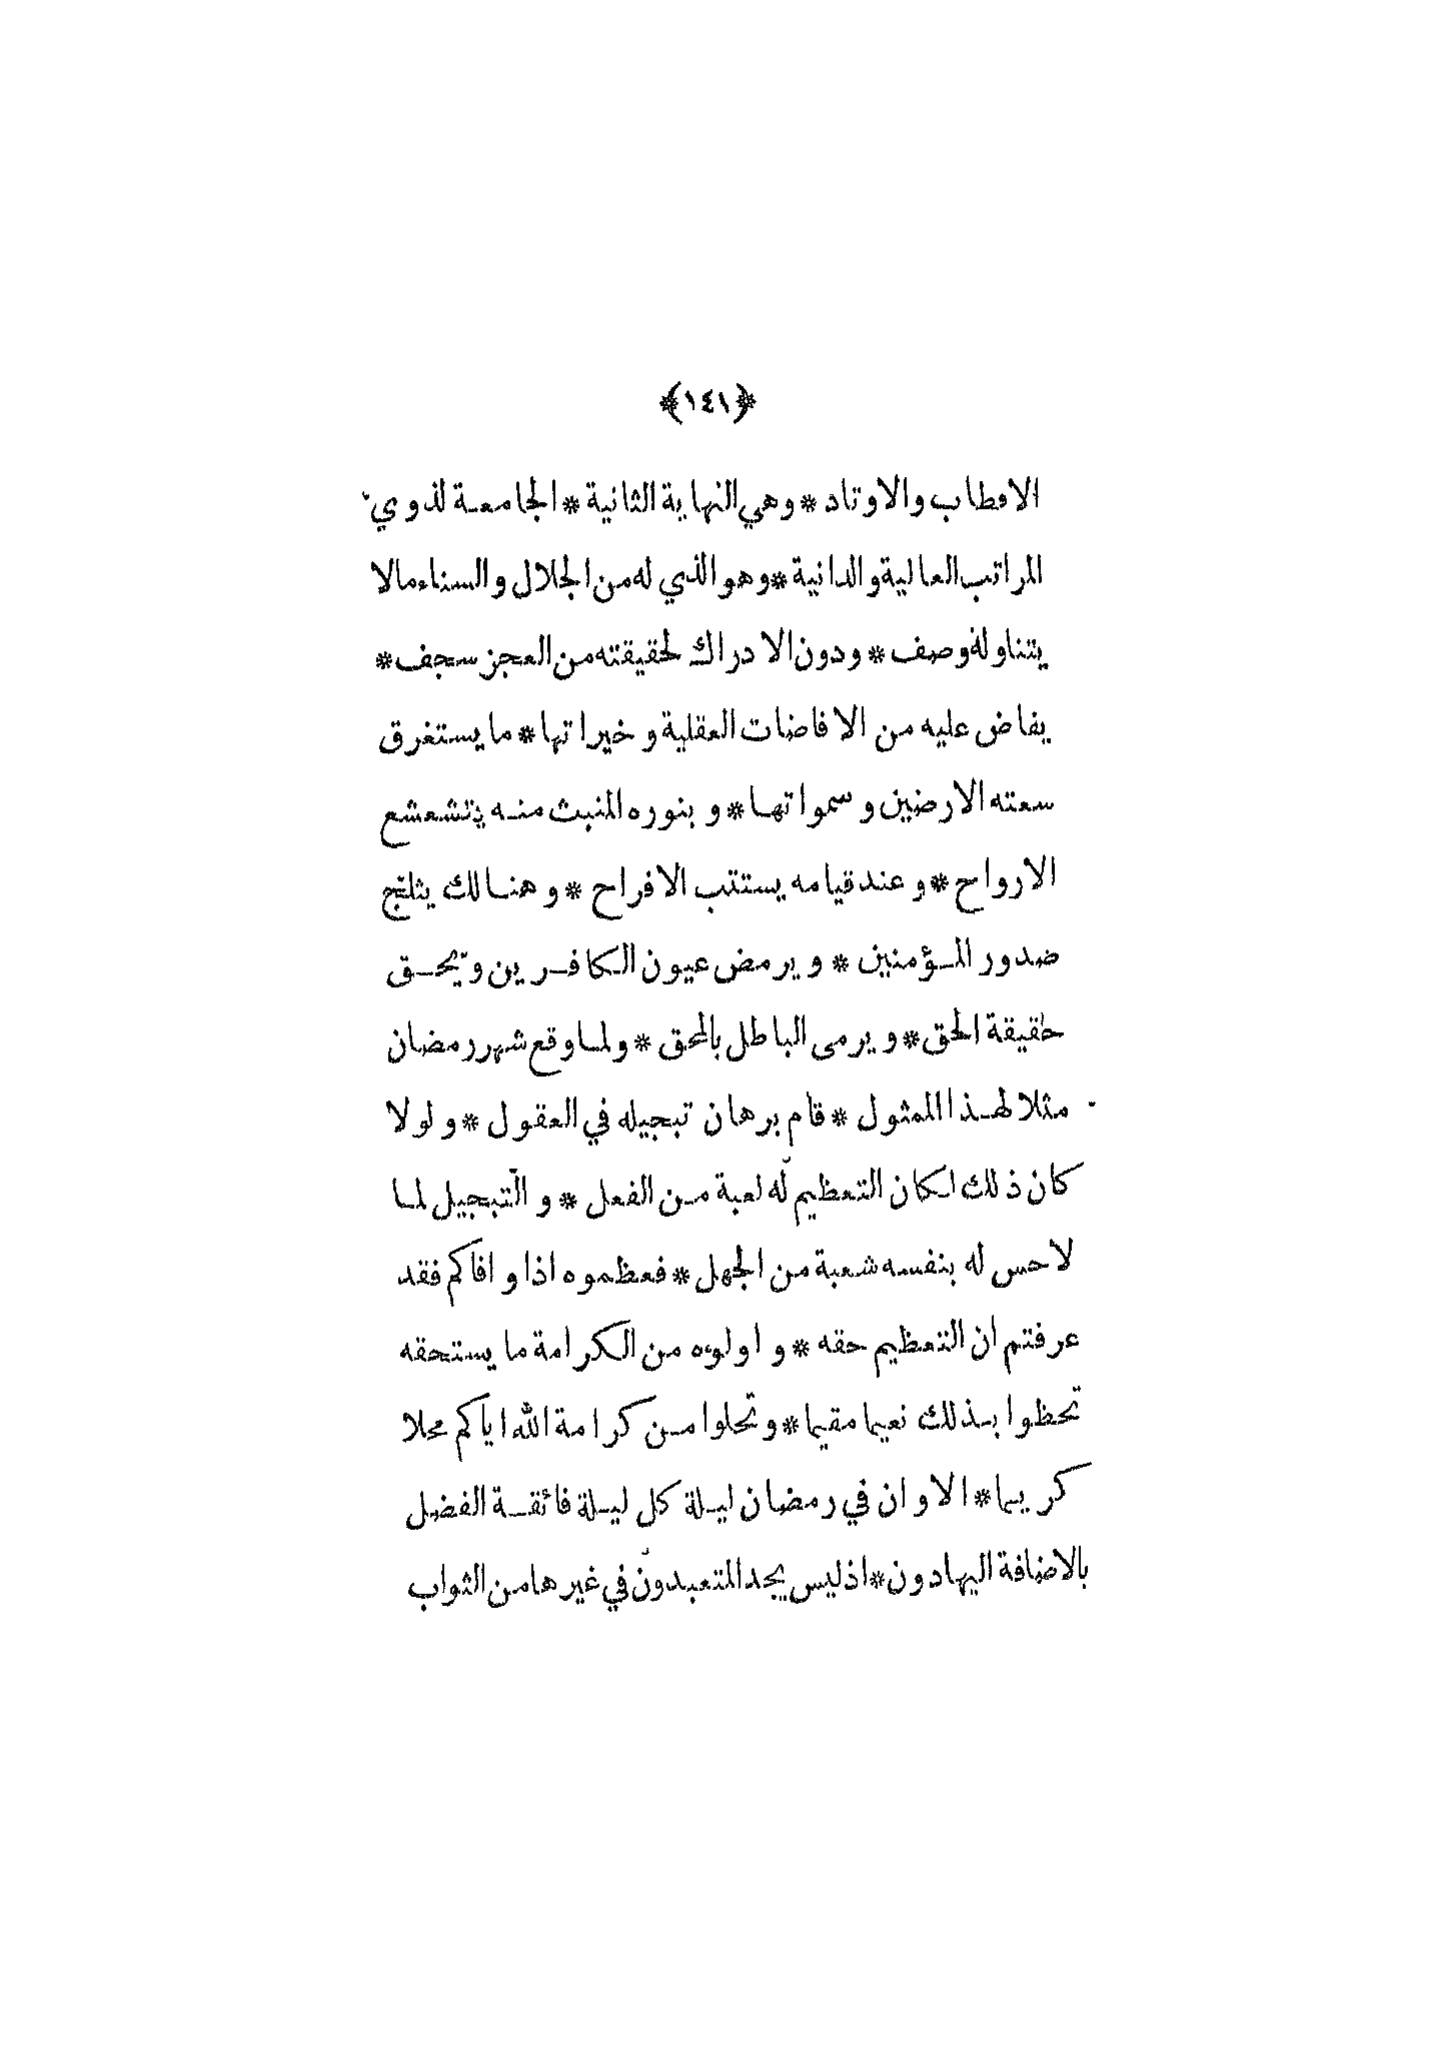 ﴿١٤١﴾
الاقطاب والاوتاد * وهي النهاية الثانية * الجامعة لذوي
المراتب العالية والدانية * وهو الذي له من الجلال والسناء مالا
يتناوله وصف * ودون الادراك لحقيقته من العجز سجف *
يفاض عليه من الافاضات العقلية وخيراتها * ما يستغرق
سعته الارضين وسمواتها * وبنوره المنبث منه يتشعشع
الارواح * وعند قيامه يستتب الافراح * وهنالك يثلج
صدور المؤمنين * ويرمض عيون الكافرين ويحق
حقيقة الحق * ويرمى الباطل بالمحق * ولما وقع شهر رمضان
مثلا لهذا الممثول * قام برهان تبجيله في العقول * ولولا
كان ذلك لكان التعظيم له لعبة من الفعل * والتبجيل لما
لا حس له بنفسه شعبة من الجهل * فعظموه اذا وافاكم فقد
عرفتم ان التعظيم حقه * واولوه من الكرامة ما يستحقه
تحظوا بذلك نعيما مقيما * وتحلوا من كرامة الله اياكم محلا
كريما * الا وان في رمضان ليلة كل ليلة فائقة الفضل
بالاضافة اليها دون * اذ ليس يجد المتعبدون في غيرها من الثواب